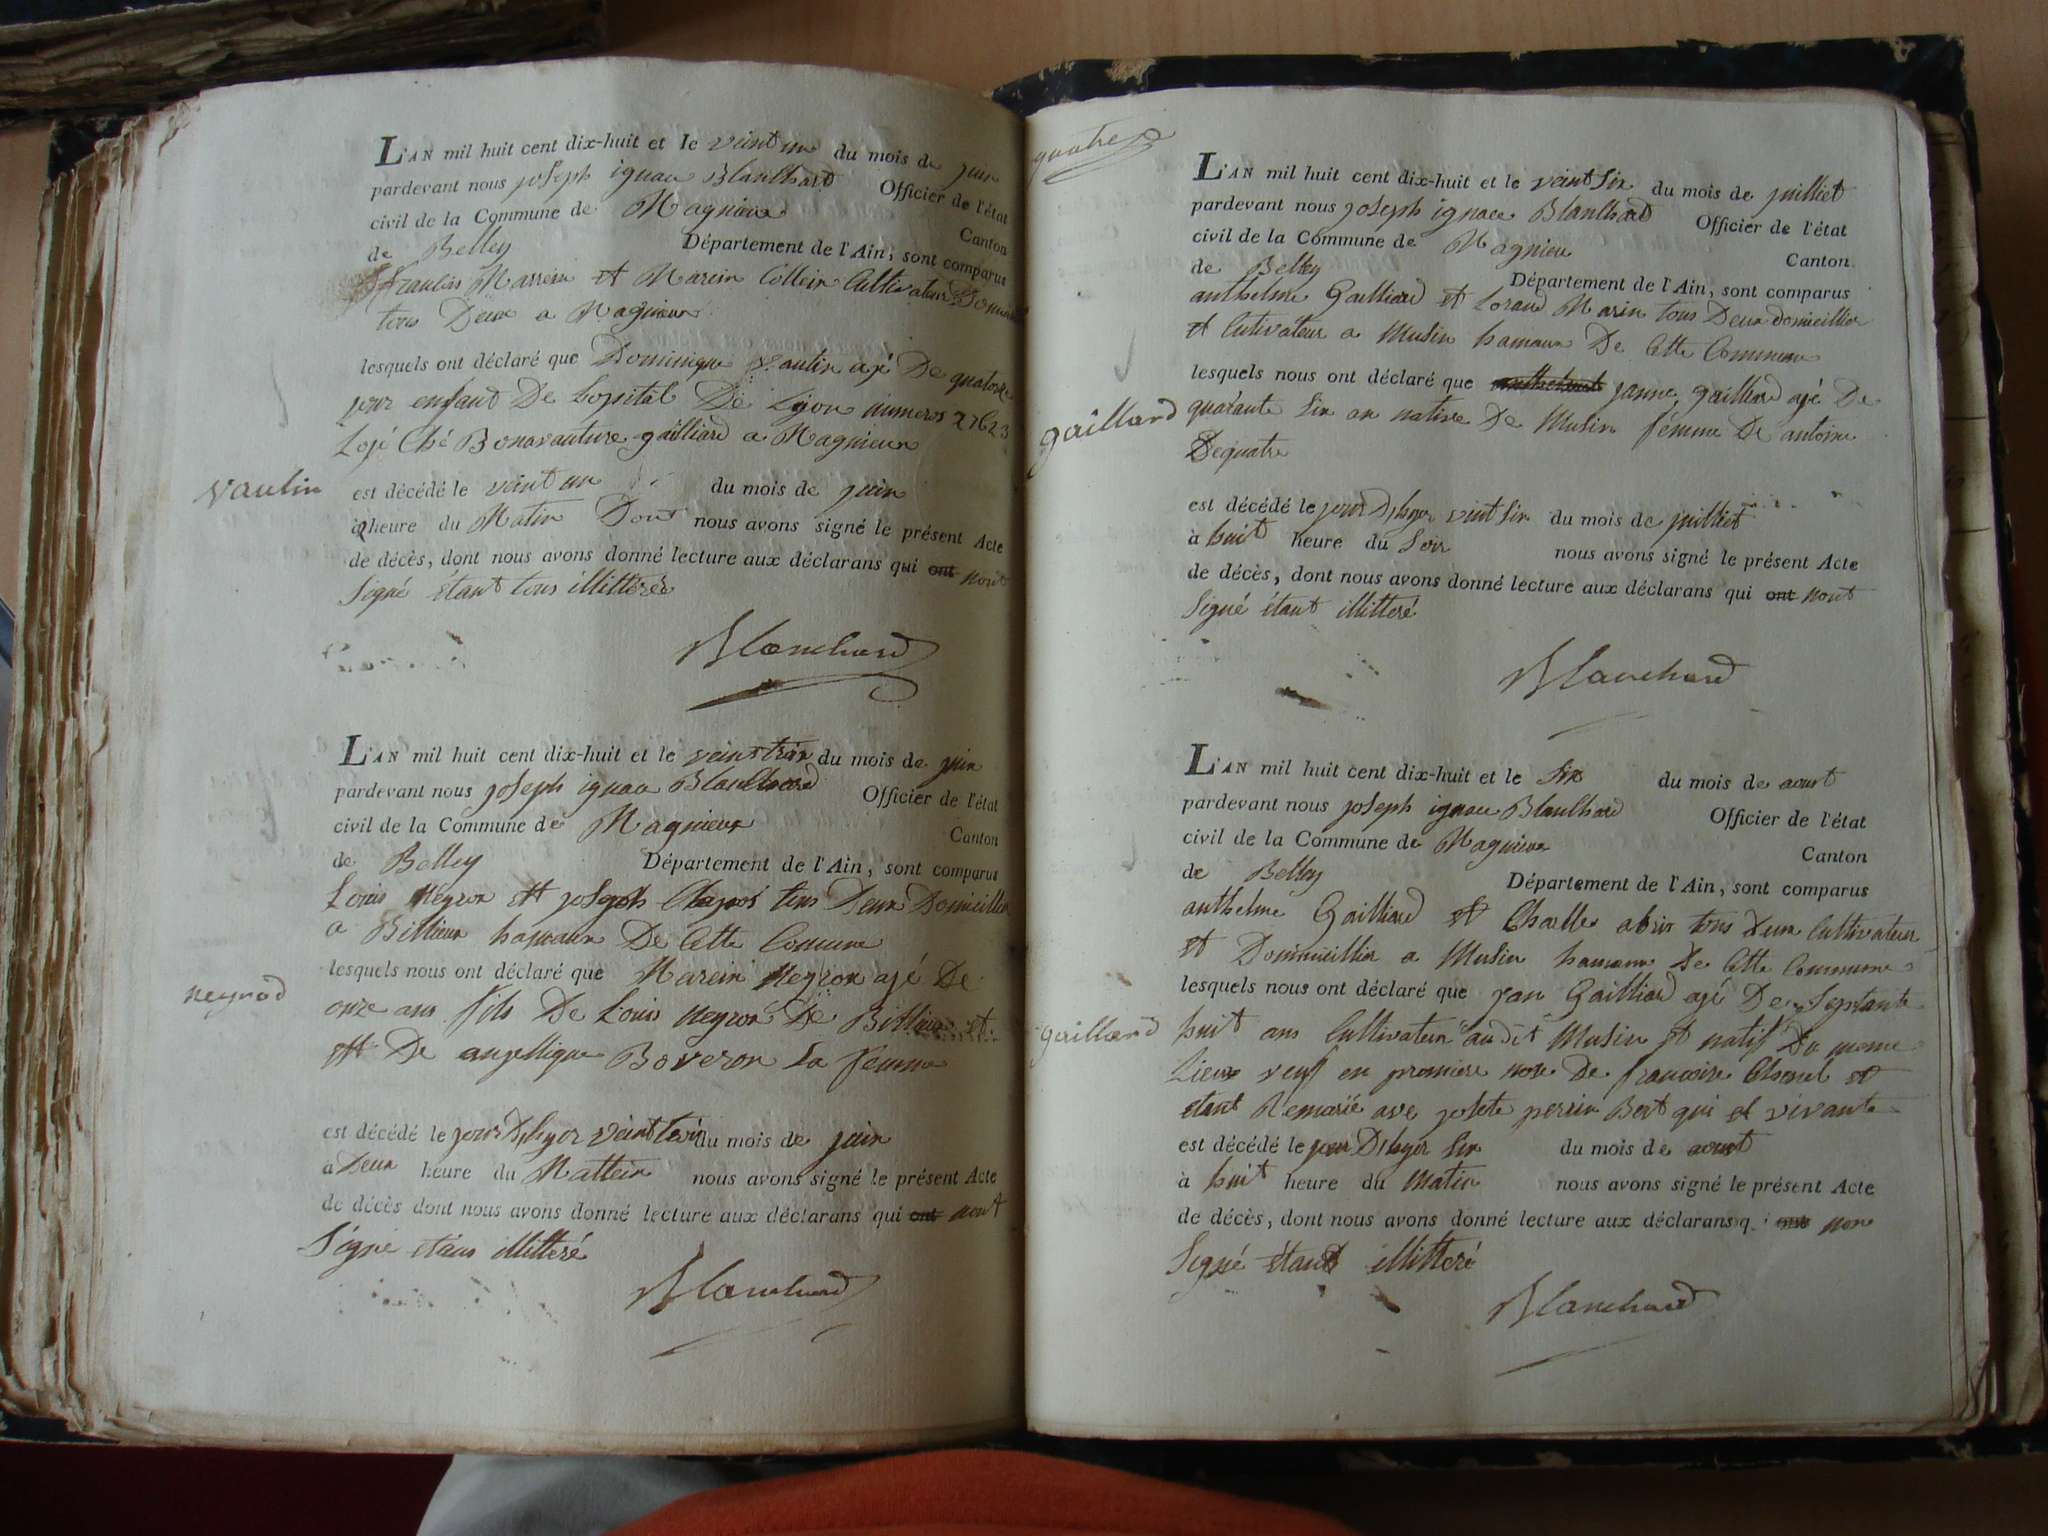 L'AN mil huit cent dix-huit et le veint un du mois de juin
pardevant nous joseph ignace Blanchard Officier de l'état
civil de la Commune de Magnieux Canton
de Belley Département de l'Ain, sont comparus
Marein Cultivateur
tous Deux a Magnieux
lesquels ont déclaré que Dominique Vaulin ajé De quatorze
jour enfant De Lopital De Lyon numeros 27623
Lojé Ché Bonavanture gailliard a Magnieux
vaulin
est décédé le veint un du mois de juin
à heure du Matin Dont nous avons signé le présent Acte
de décès, dont nous avons donné lecture aux déclarans qui ont nont
Signé étant tous illitteré
Blanchard
L'AN mil huit cent dix-huit et le veint trois du mois de juin
pardevant nous joseph ignace Blanchard Officier de l'état
civil de la Commune de Magnieux Canton
de Belley Département de l'Ain, sont comparus
Louis Neyron et joseph tous Deux Domicillier
a Billieux hamaux De Cette Comune
lesquels nous ont déclaré que Marein Neyron ajé De
onze ans fils De Louis Neyron De Billieux et
et De anjellique Boveron Sa femme
neyrod
est décédé le jour D'huyor veint trois du mois de juin
à Deux heure du Mattein nous avons signé le présent Acte
de décès dont nous avons donné lecture aux déclarans qui ont nont
Signé etans illitteré
Blanchard
quatre
L'AN mil huit cent dix-huit et le veint six du mois de juilliet
pardevant nous joseph ignace Blanchard Officier de l'état
civil de la Commune de Magnieu Canton
de Belley Département de l'Ain, sont comparus
anthelme Gailliard et Loraud Marin tous Deux domicillier
et Cutivateur a Musin hamaux De Cette Commune
lesquels nous ont déclaré que janne gailliard ajé De
gaillard
quarante six an native De Musin fémme De antoine
Dequatre
est décédé le jour D'huyor veint six du mois de juilliet
à huit heure du Soir nous avons signé le présent Acte
de décès, dont nous avons donné lecture aux déclarans qui ont nont
Signé étant illitteré
Blanchard
L'AN mil huit cent dix-huit et le six du mois de aout
pardevant nous joseph ignace Blanchard Officier de l'état
civil de la Commune de Magnieux Canton
de Belley Département de l'Ain, sont comparus
anthelme Gailliard et Charlles abrir tous Deux Cultivateur
et Domicillier a Musin hamaux De Cette Commune
lesquels nous ont déclaré que jan Gailliard ajé De Septante
gaillard
huit ans Cultivateur audit Musin et natif Du meme
Lieux veuf en premiere nose De francoise et
etant Remarié ave josete perrin Bert qui et vivante
est décédé le jour D'huyor six du mois de aout
à huit heure du Matin nous avons signé le présent Acte
de décès, dont nous avons donné lecture aux déclarans q i ont non
Signé étant illitteré
Blanchard